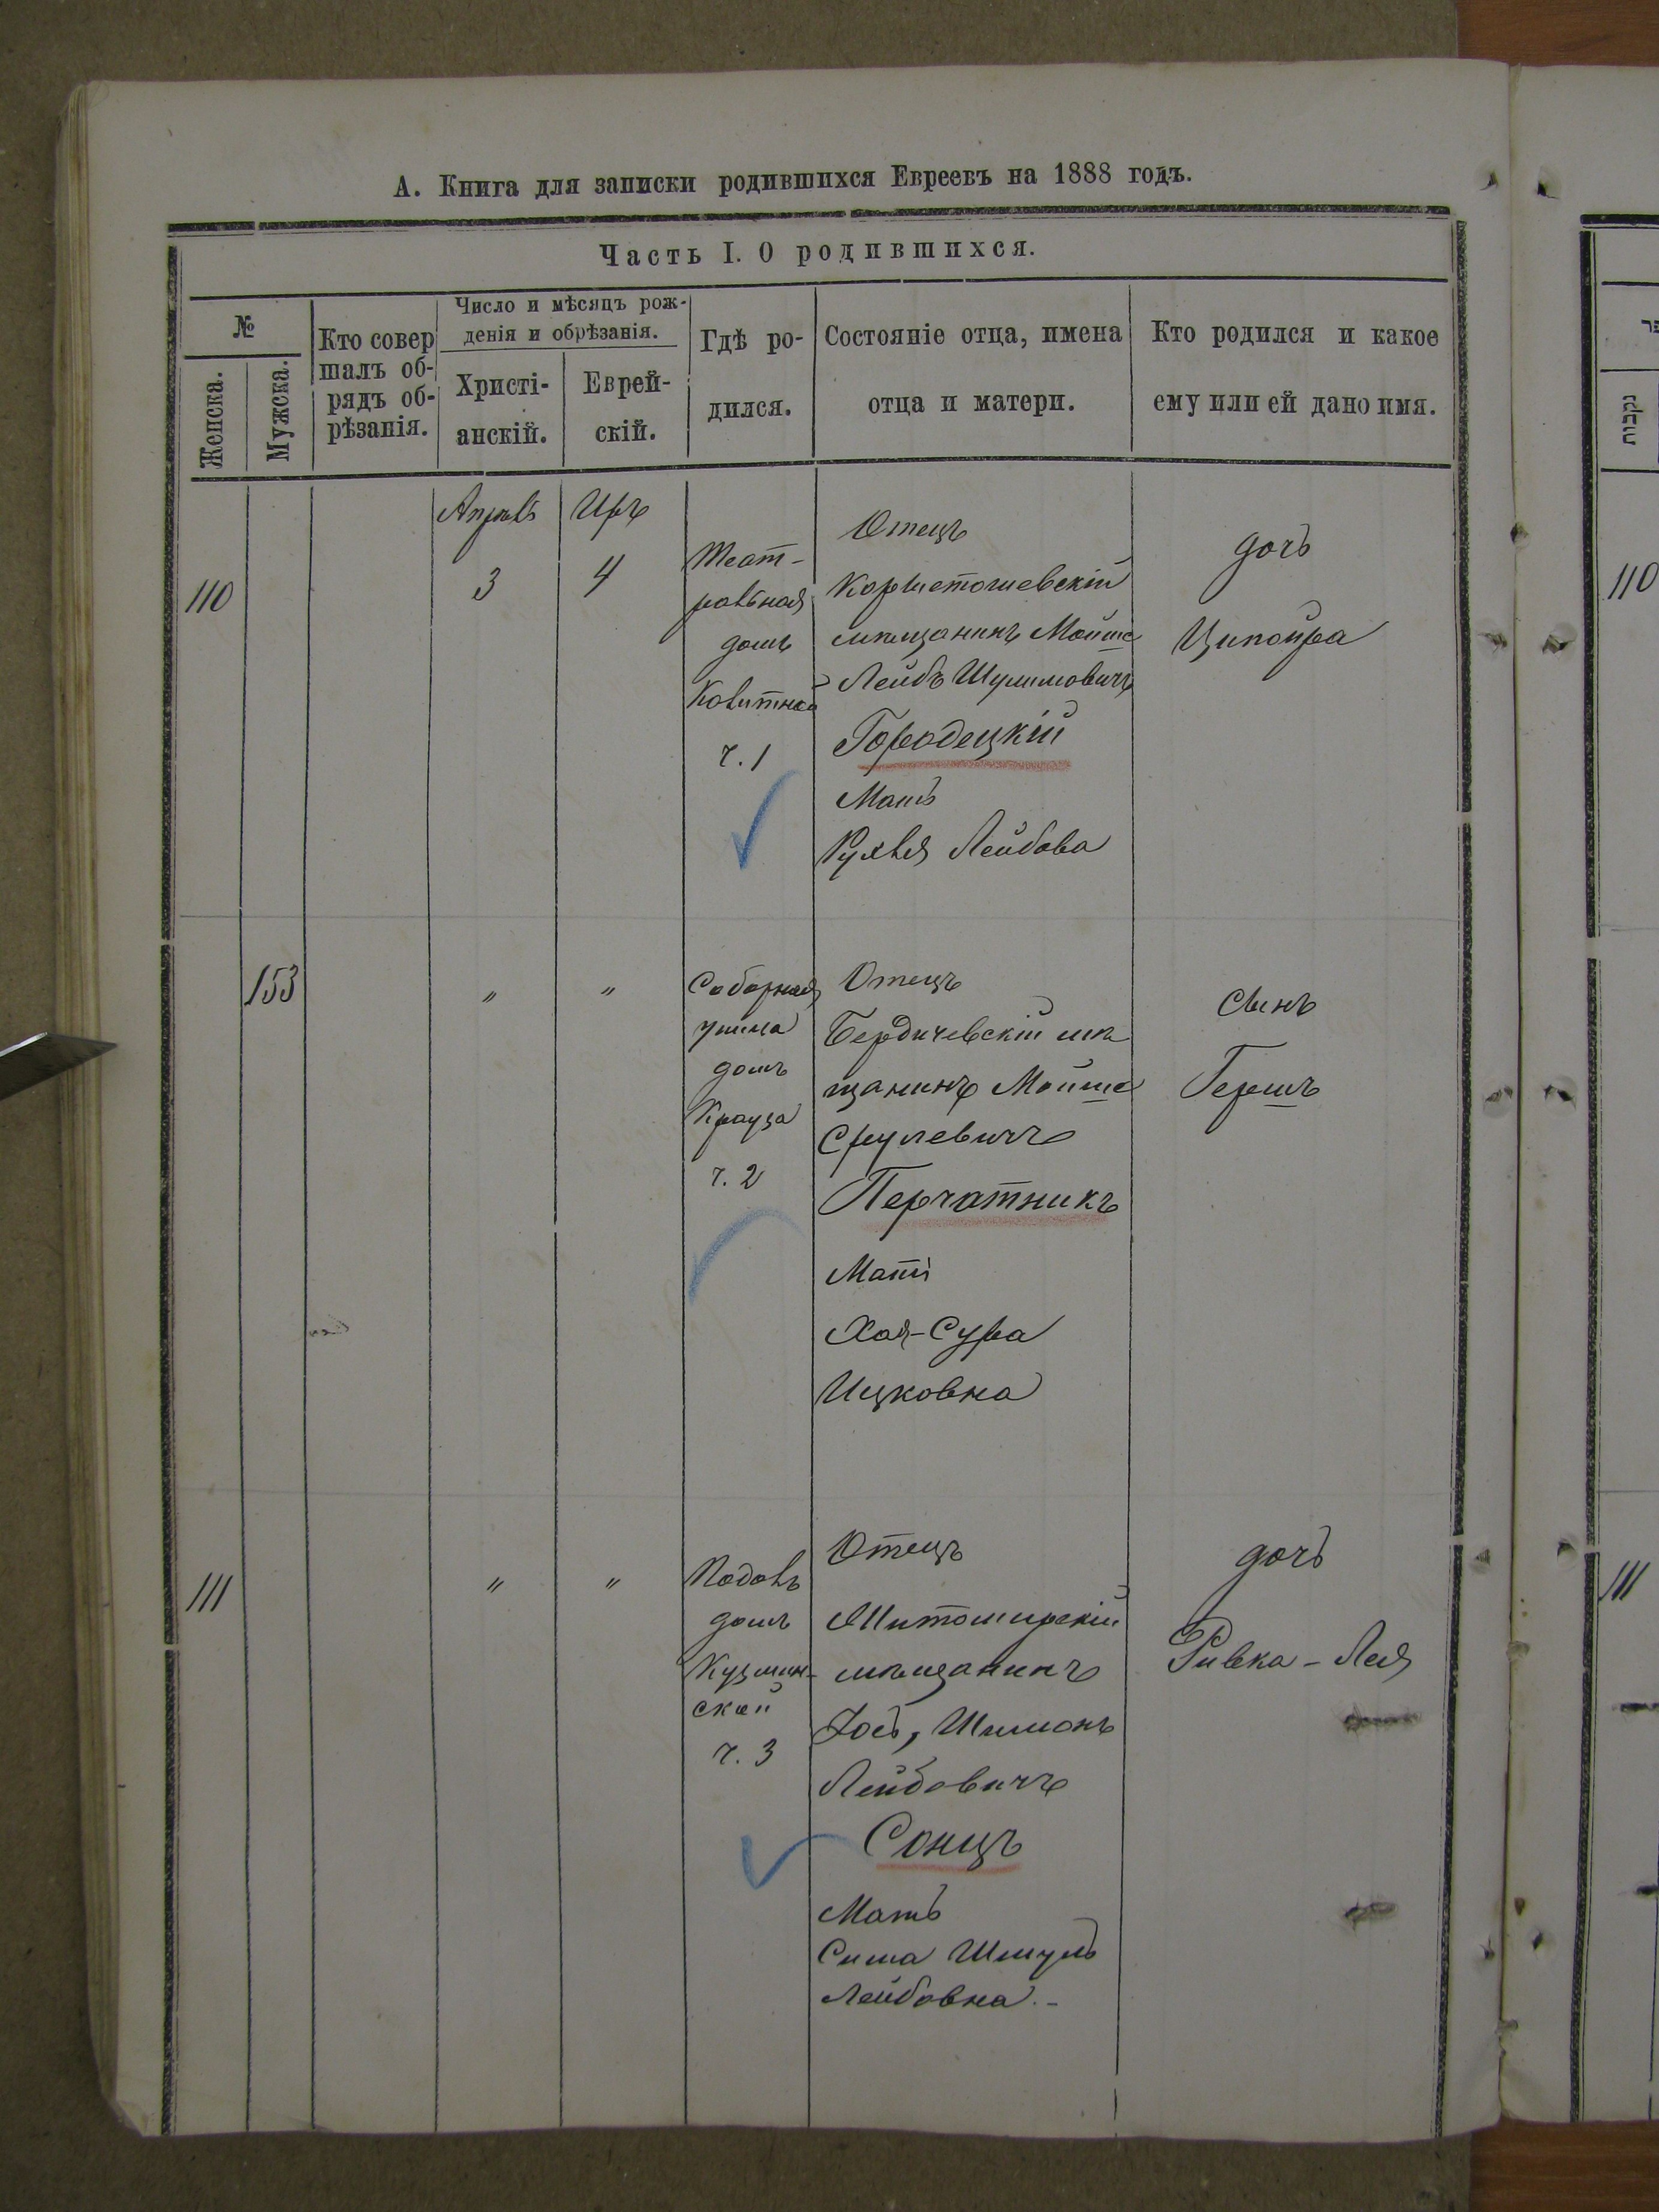 А. Книга для записки родившихся Евреевъ на 1888 годъ.
Часть I. О родившихся.
№
Женска.
Мужска.
Кто совер
шалъ об-
рядъ об-
рѣзанія.
Число и мѣсяцъ рож-
денія и обрѣзанія.
Христі-
анскій.
Еврей-
скій.
Гдѣ ро-
дился.
Состояніе отца, имена
отца и матери.
Кто родился и какое
ему или ей дано имя.
110
Апрель
3
Иръ
4
Теат-
ральная
домъ
ч. 1
Отецъ
мѣщанинъ Мойше
Лейбъ Шулимовичъ
Городецкій
Мать
Рухля Лейбова
дочь
Ципойра
153
"
"
Соборная
улица
домъ
Крауза
ч. 2
Отецъ
Бердичевскій мѣ
щанинъ Мойше
Срулевичъ
Перчатникъ
Мать
Хая-Сура
Ицковна
сынъ
Гершъ
111
"
"
Подолъ
домъ
Кузмин-
ской
ч. 3
Отецъ
Житомирскій
мѣщанинъ
Шимонъ
Лейбовичъ
Сонцъ
Мать
Сима Шмуль
Лейбовна.-
дочь
Ривка-Лея
נקבות
110
111